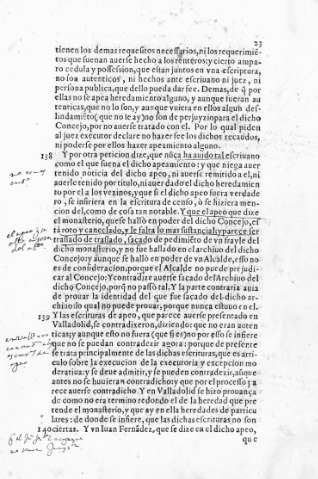 23
tienen los demas requesitos necessarios, ni los requerimiẽ-
tos que suenan auerse hecho a los renteros: y cierto ampa-
ro cedula y possession, que estan juntos en vna escriptura,
no son autenticos, ni hechos ante escriuano ni juez, ni
persona publica, que dello pueda dar fee. Demas, de q̃ por
ellas no se apea heredamiento alguno, y aunque fueran au-
tenticas, que no lo son, y aun que vuiera en ellos algun des-
lindamiẽto, que no le ay, no son de perjuyzio para el dicho
Concejo, por no auerse tratado con el. Por lo qual piden
al juez executor declare no hazer fee los dichos recaudos,
ni poderse por ellos hazer apeamiento alguno.
138 Y por otra peticion dize, que nũca ha auido tal escriuano
como el que suena el dicho apeamiento: y que niega auer
tenido noticia del dicho apeo, ni auerse remitido a el, ni
auerse tenido por titulo, ni auer dado el dicho heredamien
to por el a los vezinos, y que si el dicho apeo fuera verdade
ro, se insiriera en la escritura de censo, ò se hiziera men-
cion del, como de cosa tan notable. Y que el apeo que dize
el monasterio, que se hallò en poder del dicho Concejo, es
tà roto y cancelado, y le falta lo mas sustancial, y parece ser
traslado de traslado, sacado de pedimiẽto de vn frayle del
dicho monasterio, y no fue hallado en el archiuo del dicho
Concejo: y aunque se hallò en poder de vn Alcalde, esso no
es de consideracion, porque el Alcalde no puede perjudi-
car al Concejo: Y contradize auerse sacado del Archiuo del
dicho Concejo, porq̃ no passò tal. Y la parte contraria auia
de prouar la identidad del que fue sacado del dicho ar-
chiuo, lo qual no puede prouar, porque nunca estuuo en el.
139 Y las escripturas de apeo, que parece auerse presentado en
Valladolid, se contradixeron, diziendo: que no eran auten
ticas: y aunque esto no fuera (que si erã) no por esso se infiere
que no se puedan contradezir agora: porque de presente
se trata principalmente de las dichas escrituras, que es arti-
culo sobre la execucion de la executoria y excepcion mo
deratiua: y se deue admitir, y se pueden contradezir, aũque
antes no se huuieran contradicho: y que por el processo pa
rece auerse contradicho. Y en Valladolid se hizo prouança
de como no era termino redondo el de la heredad que pre
tende el monasterio, y que ay en ella heredades de particu
lares: de donde se infiere, que las dichas escrituras no son
140 ciertas. Y vn Iuan Fernãdez, que se dize en el dicho apeo,
que